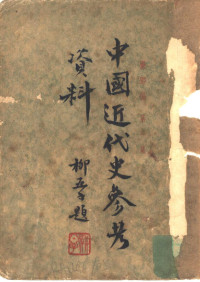 中國近代史參考
資料
柳亞子題